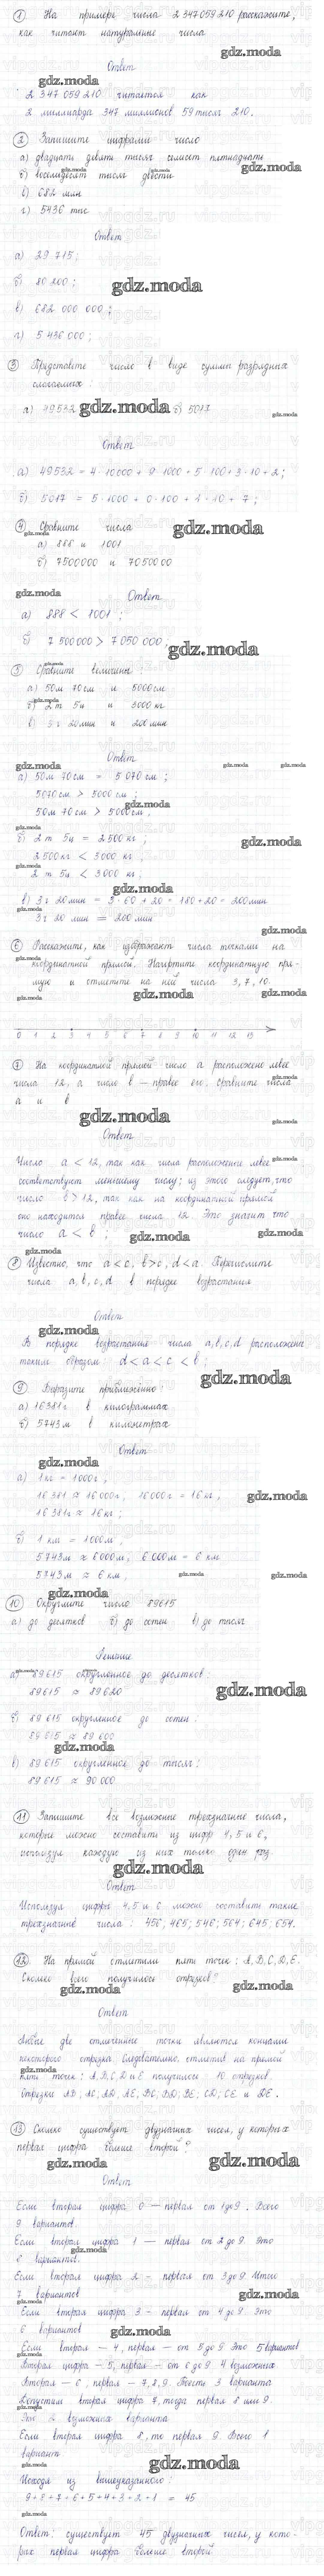 1 На примере числа 2 347 059 210 расскажите,
как читают натуральные числа
gdz.moda
Ответ
gdz.moda
2 347 059 210 читается как
2 миллиарда 347 миллионов 59 тысяч 210.
2 Запишите цифрами число
а) двадцать девять тысяч семьсот пятнадцать
gdz.moda
б) восемьдесят тысяч двести
в) 682 млн
г) 5436 тыс
Ответ
а) 29 715;
б) 80 200;
gdz.moda
в) 682 000 000;
г) 5 436 000;
3 Представьте число в виде суммы разрядных
слагаемых:
а) 49532 gdz.moda б) 5017
gdz.moda
Ответ
а) 49532 = 4·10000 + 9·1000 + 5·100 + 3·10 + 2;
б) 5017 = 5·1000 + 0·100 + 1·10 + 7;
4 Сравните числа
gdz.moda
а) 888 и 1001
б) 7500000 и 7050000
gdz.moda
Ответ
а) 888 < 1001;
б) 7 500 000 > 7 050 000;
gdz.moda
5 Сравните величины
а) 50м 70см и 5000см
б) 2т 5ц и 3000 кг
в) 3 г 20мин и 200мин
Ответ
gdz.moda
а) 50м 70см = 5070 см;
5070см > 5000 см;
50м 70см > 5000см;
gdz.moda
б) 2т 5ц = 2500 кг;
gdz.moda
2500кг < 3000 кг
2т 5ц < 3000 кг;
gdz.moda
в) 3г 20мин = 3·60 + 20 = 180+20 = 200мин
3г 20 мин = 200 мин
gdz.moda
6 Расскажите, как изображают числа точками на
координатной прямой. Начертите координатную пря-
мую и отметьте на ней числа 3, 7, 10.
gdz.moda
0 1 2 3 4 5 6 7 8 9 10 11 12 13
7 На координатной прямой число а расположено левее
числа 12, а число в — правее его. Сравните числа
а и в
gdz.moda
Ответ
Число а < 12, так как числа расположенные левее
соответствуют меньшему числу; из этого следует, что
число в > 12, так как на координатной прямой
оно находится правее числа 12. Это значит что
число а < в;
gdz.moda
8 Известно, что а < с, в > с, d < а. Перечислите
числа а, b, c, d в порядке возрастания
Ответ
gdz.moda
В порядке возрастания числа а, b, с, d расположены
таким образом: d < a < c < b;
gdz.moda
9 Выразите приближенно:
а) 16381г в килограммах
б) 5743м в километрах
Ответ
gdz.moda
а) 1кг = 1000г;
16381 ≈ 16000г; 16000г = 16 кг;
gdz.moda
16381г ≈ 16 кг;
б) 1 км = 1000м;
5743м ≈ 6000м; 6000м = 6 км
5343м ≈ 6 км;
gdz.moda
10 Округлите число 89615
а) до десятков б) до сотен в) до тысяч
Решение
а) 89615 округленное до десятков:
89615 ≈ 89620
gdz.moda
б) 89 615 округленное до сотен:
89 615 ≈ 89 600
gdz.moda
в) 89615 округленное до тысяч:
89615 ≈ 90 000
11 Запишите все возможные трехзначные числа,
которые можно составить из цифр 4, 5 и 6,
используя каждую из них только один раз
gdz.moda
Ответ
Используя цифры 4, 5 и 6 можно составить такие
трехзначные числа: 456; 465; 546; 564; 645; 654.
12 На прямой отметили пять точек: A, B, C, D, E.
Сколько всего получилось отрезков?
gdz.moda
Ответ
Любые две отмеченные точки являются концами
некоторого отрезка. Следовательно, отметив на прямой
пять точек: A, B, C, D и E получилось 10 отрезков.
Отрезки AB; AC; AD; AE; BC; BD; BE; CD; CE и DE.
13 Сколько существует двузначных чисел, у которых
первая цифра больше второй?
gdz.moda
Ответ
Если вторая цифра 0 — первая от 1 до 9. Всего
9 вариантов.
Если вторая цифра 1 — первая от 2 до 9. Это
8 вариантов.
Если вторая цифра 2 - первая от 3 до 9 Итого
7 вариантов
gdz.moda
Если вторая цифра 3 - первая от 4 до 9 Это
6 вариантов
Если вторая — 4, первая — от 5 до 9 Это 5 вариантов
Вторая цифра — 5, первая — от 6 до 9 4 возможных
Вторая — 6, первая — 7, 8, 9. Всего 3 варианта
Допустим вторая цифра 7, тогда первая 8 или 9
Это 2 возможных варианта
Если вторая цифра 8, то первая 9. Всего 1
вариант
gdz.moda
Исходя из вышеуказанного:
9+8+7+6+5+4+3+2+1 = 45
gdz.moda
Ответ: существует 45 двузначных чисел, у кото-
рых первая цифра больше второй